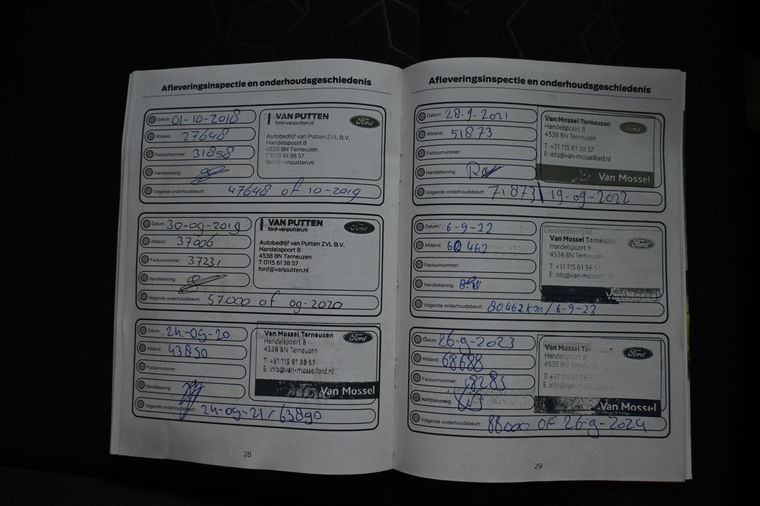 Afleveringsinspectie en onderhoudsgeschiedenis
Datum: 01-10-2018
Afstand: 27648
Factuurnummer: 31858
Handtekening:
Volgende onderhoudsbeurt: 47648 of 10-2019
VAN PUTTEN
ford-vanputten.nl
Ford
Autobedrijf van Putten ZVL B.V.
Handelspoort 8
4538 BN Terneuzen
T 0115 61 38 57
ford@vanputten.nl
Datum: 30-09-2019
Afstand: 37006
Factuurnummer: 37231
Handtekening:
Volgende onderhoudsbeurt: 57.000 of 09-2020
VAN PUTTEN
ford-vanputten.nl
Ford
Autobedrijf van Putten ZVL B.V.
Handelspoort 8
4538 BN Terneuzen
T 0115 61 38 57
ford@vanputten.nl
Datum: 24-09-20
Afstand: 43850
Factuurnummer:
Handtekening:
Volgende onderhoudsbeurt: 24-09-21/63890
Van Mossel Terneuzen
Handelspoort 8
4538 BN Terneuzen
Ford
T: +31 115 61 38 57
E: info@van-mosselford.nl
Van Mossel
28
Afleveringsinspectie en onderhoudsgeschiedenis
Datum: 28-9-2021
Afstand: 51873
Factuurnummer:
Handtekening:
Volgende onderhoudsbeurt: 71873 19-09-2022
Van Mossel Terneuzen
Handelspoort 8
4538 BN Terneuzen
Ford
T: +31 115 61 38 57
E: info@van-mosselford.nl
Van Mossel
Datum: 6-9-22
Afstand: 60462
Factuurnummer:
Handtekening:
Volgende onderhoudsbeurt: 80462km/6-9-23
Dealerstempel
Van Mossel Terneuzen
Handelspoort 8
4538 BN Terneuzen
T: +31 115 61 38 57
E: info@van-mosselford.nl
Van Mossel
Datum: 26-9-2023
Afstand: 68688
Factuurnummer: 48283
Handtekening:
Volgende onderhoudsbeurt: 88000 OF 26-9-2024
Van Mossel
Handelspoort 8
4538 BN Terneuzen
Ford
T: +31 115 61 38 57
E: info@van-mosself
Van Mossel
29